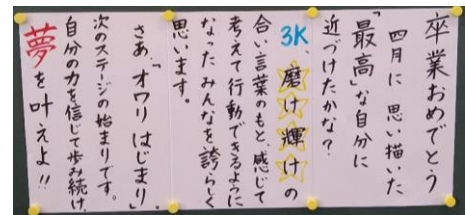 卒業おめでとう
四月に思い描いた
「最高」な自分に
近づけたかな？
3K、磨け輝けの
合い言葉のもと、感じて
考えて行動できるように
なったみんなを誇らしく
思います。
さあ、「オワリはじまり」
次のステージの始まりです。
自分の力を信じて歩み続け、
夢を叶えよ!!